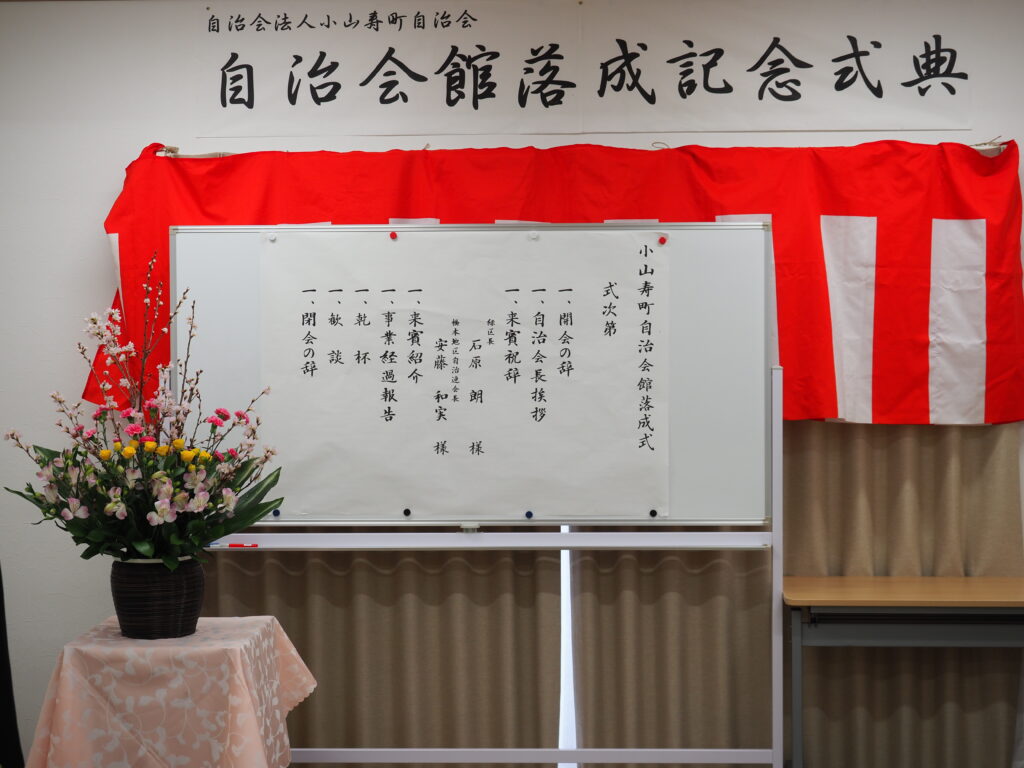 自治会法人小山寿町自治会
自治会館落成記念式典
小山寿町自治会館落成式
式次第
一、開会の辞
一、自治会長挨拶
一、来賓祝辞
緑区長
石原 朗 様
橋本地区自治連会長
安藤 和実 様
一、来賓紹介
一、事業経過報告
一、乾杯
一、歓談
一、閉会の辞